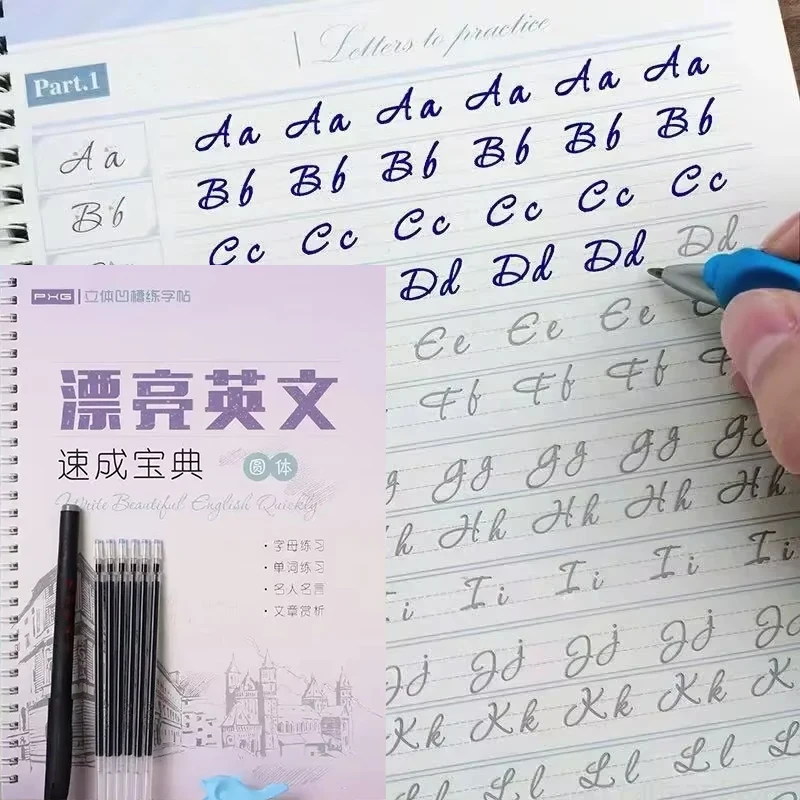 Letters to practice
Part.1
Aa Aa Aa Aa Aa Aa Aa
Bb Bb Bb Bb Bb Bb Bb
Cc Cc Cc Cc Cc Cc
Dd Dd Dd Dd
Ee Ee Ee
Ff Ff Ff
g Gg Gg Gg Gg
h Hh Hh Hh Hh
i Ii Ii Ii Ii
Jj Jj Jj Jj Jj
Kk Kk Kk Kk K
Ll Ll Ll
PXG 立体凹槽练字帖
漂亮英文
速成宝典 圆体
Write Beautiful English Quickly
·字母练习
·单词练习
·名人名言
·文章赏析